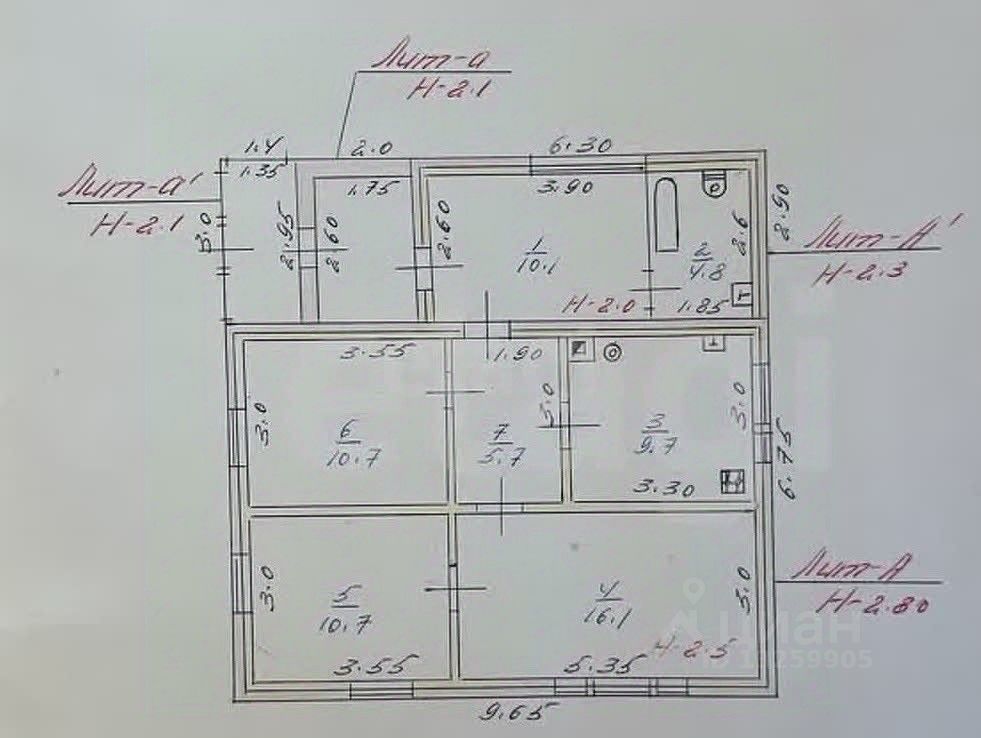 Лит-а
Н-2.1
1.4
2.0
6.30
1.35
1.75
3.90
Лит-а'
Н-2.1
3.0
2.95
2.60
2.60
1
10.1
2
4.8
2.6
2.90
Лит-А'
Н-2.3
Н-2.0
1.85
3.55
1.90
3.0
6
10.7
7
5.7
3.0
3
9.7
3.0
3.30
6.75
3.0
5
10.7
3.55
4
16.1
3.0
Н-2.5
5.35
Лит-А
Н-2.80
9.65
циан